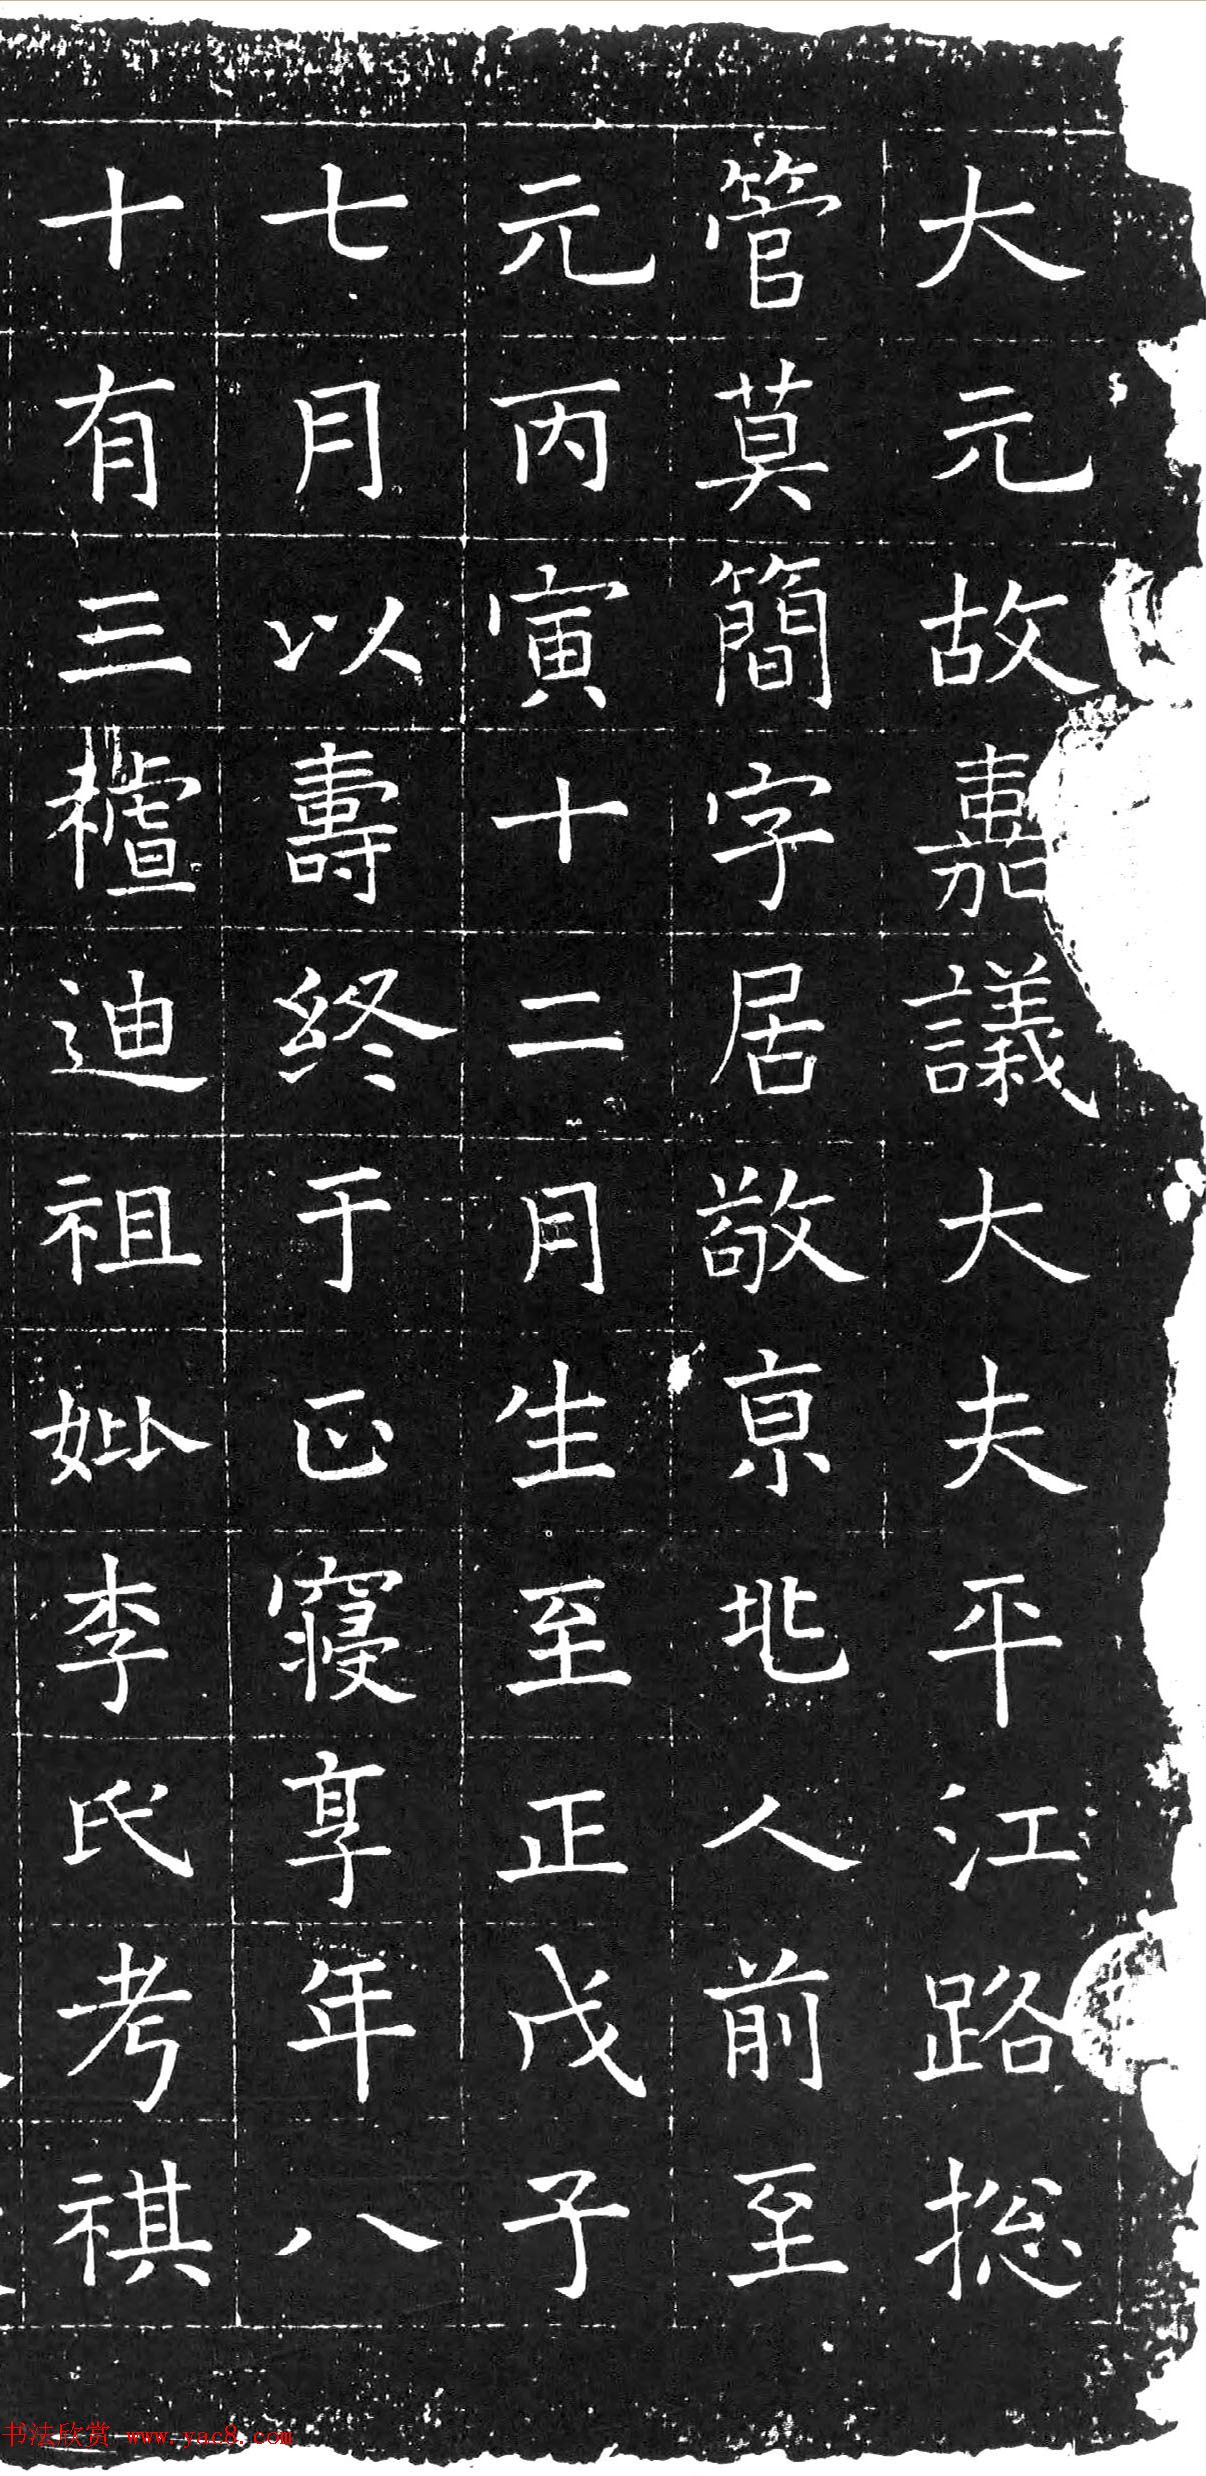 大元故嘉議大夫平江路揔
管莫簡字居敬京兆人前至
元丙寅十二月生至正戊子
七月以壽終于正寢享年八
十有三 迪祖妣李氏考祺
书法欣赏 www.yac8.com